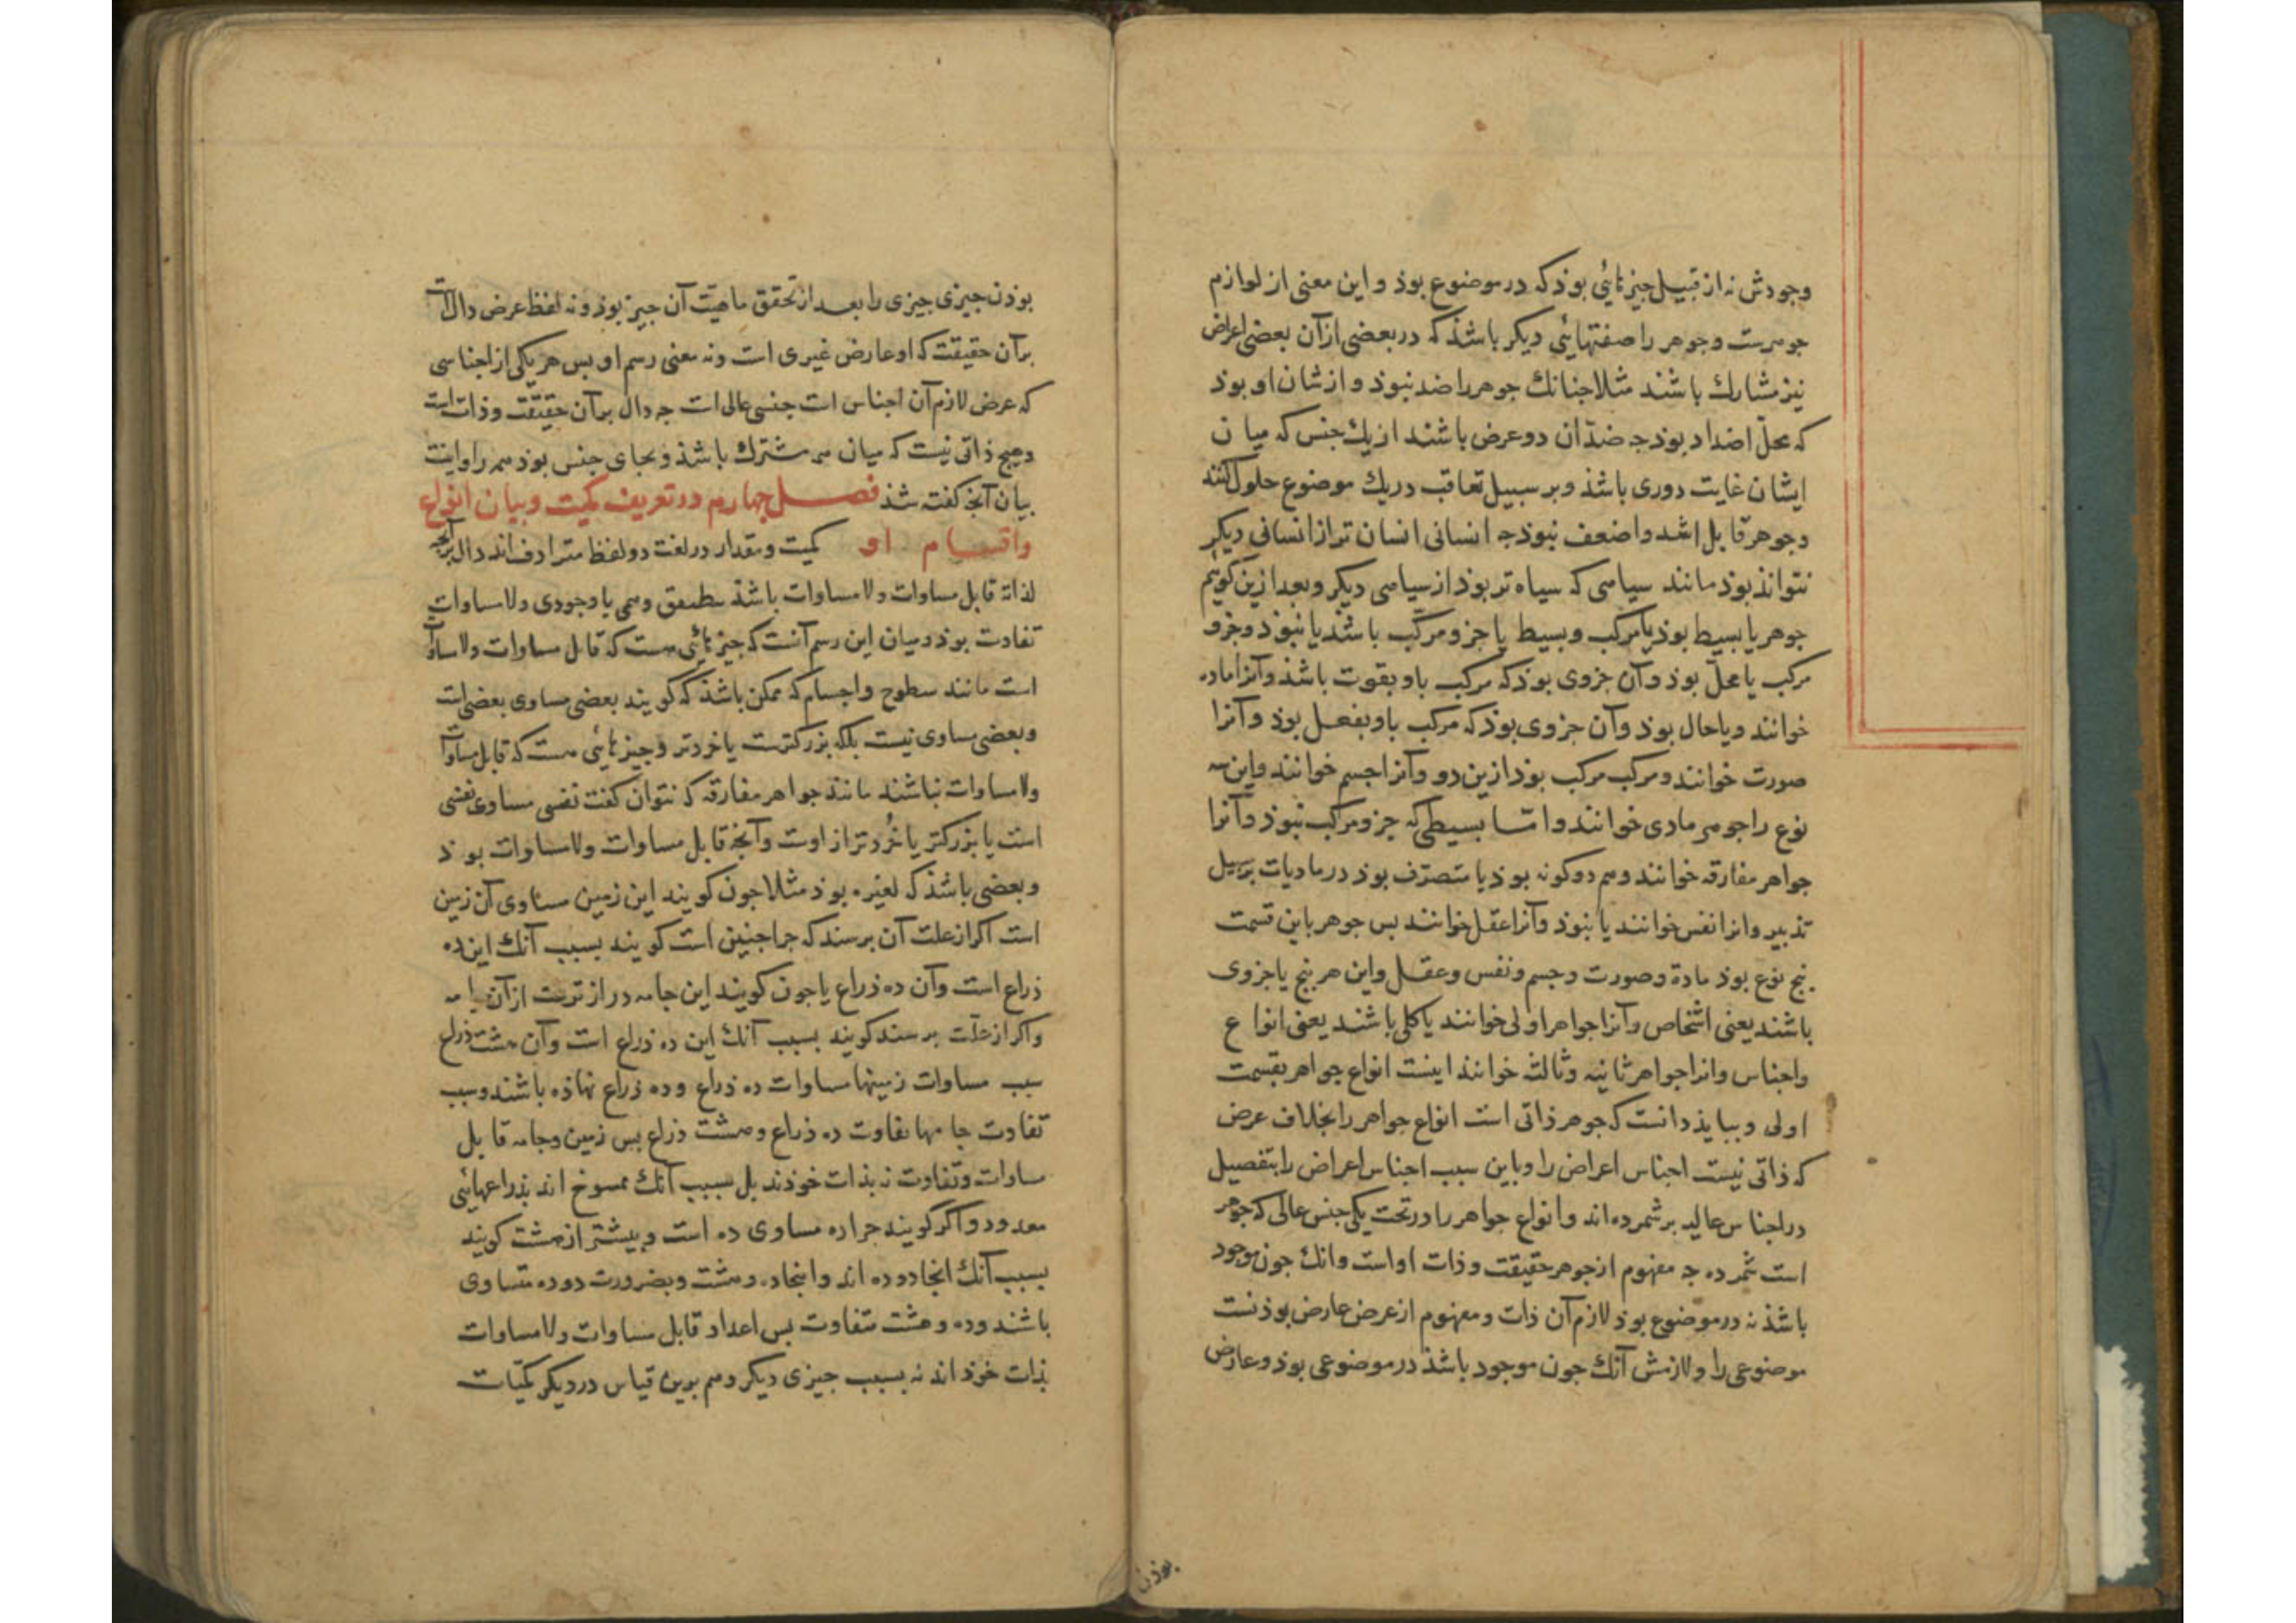 وجودش نه از قبیل جیزهائی بوذ که در موضوع بوذ و این معنی از لوازم
جوهرست و جوهر را صفتهایئی دیکر باشذ که در بعضی از آن بعضی اعراض
نیز مشارك باشند مثلا جنانك جوهر را ضد نبوذ و از شان او بوذ
که محلّ اضداد بوذ جه ضدّان دو عرض باشند از یك جنس که میان
ایشان غایت دوری باشذ و بر سبیل تعاقب در یك موضوع حلول کنند
و جوهر قابل اشد و اضعف نبوذ جه انسانی انسان تر از انسانی دیکر
نتواند بوذ مانند سیاهی که سیاه تر بوذ از سیاهی دیکر و بعد ازین کوئیم
جوهر یا بسیط بوذ یا مرکب و بسیط یا جزو مرکب باشذ یا نبوذ و جزو
مرکب یا محلّ بوذ و آن جزوی بوذ که مرکب باو بقوت باشذ و آنرا ماده
خوانند و یا حال بوذ و آن جزوی بوذ که مرکب باو بفعل بوذ و آنرا
صورت خوانند و مرکب مرکب بوذ ازین دو و آنرا جسم خوانند و این سه
نوع را جوهر مادی خوانند و امّا بسیطی که جزو مرکب نبوذ و آنرا
جواهر مفارقه خوانند و هم دو کونه بوذ یا متصرّف بوذ در مادیات بر سبیل
تذبیر و انرا نفس خوانند یا نبوذ و آنرا عقل خوانند بس جوهر باین قسمت
بنج نوع بوذ مادة و صورت و جسم و نفس و عقل و این هر بنج یا جزوی
باشند یعنی اشخاص و آنرا جواهر اولی خوانند یا کلی باشند یعنی انواع
و اجناس و انرا جواهر ثانیه و ثالثه خوانند اینست انواع جواهر بقسمت
اولی و ببایذ دانست که جوهر ذاتی است انواع جواهر را بخلاف عرض
که ذاتی نیست اجناس اعراض را و باین سبب اجناس اعراض را بتفصیل
در اجناس عالیه بر شمرده اند و انواع جواهر را در تحت یکی جنس عالی که جوهر
است شمرده جه مفهوم از جوهر حقیقت و ذات او است و انك جون موجود
باشذ نه در موضوع بوذ لازم آن ذات و مفهوم از عرض عارض بوذنست
موضوعی را و لازمش آنك جون موجود باشذ در موضوعی بوذ و عارض
بوذن
بوذن جیزی جیزی را بعد از تحقق ماهیّت آن جیز بوذ و نه لفظ عرض دال است
بر آن حقیقت که او عارض غیری است و نه معنی رسم او بس هر یکی از اجناسی
که عرض لازم آن اجناس است جنسی عالی است جه دال بر آن حقیقت و ذات است
و هیج ذاتی نیست که میان همه مشترك باشذ و بجای جنس بوذ همه را و اینست
بیان آنج کفته شذ فصل جهارم در تعریف کمیت و بیان انواع
و اقسام او کمیت و مقدار در لغت دو لفظ مترادف اند دال بر آنجه
لذاته قابل مساوات و لا مساوات باشذ بتطبیق وهمی یا وجودی و لا مساوات
تفاوت بوذ و میان این رسم آنست که جیزهائی هست که قابل مساوات و لا مساوات
است مانند سطوح و اجسام که ممکن باشذ که کویند بعضی مساوی بعضی است
و بعضی مساوی نیست بلکه بزرکترست یا خردتر و جیزهائی هست که قابل مساوات
و لا مساوات نباشند مانند جواهر مفارقه که نتوان کفت نفسی مساوی نفسی
است یا بزرکتر یا خُردتر از اوست و آنجه قابل مساوات و لا مساوات بوذ
و بعضی باشذ که لغیره بوذ مثلا جون کویند این زمین مساوی آن زمین
است اکر از علت آن برسند که جرا جنین است کویند بسبب آنك این ده
ذراع است و آن ده ذراع یا جون کویند این جامه درازترست از آن جامه
و اکر از علّت برسند کویند بسبب آنك این ده ذراع است و آن هشت ذراع
سبب مساوات زمینها مساوات ده ذراع و ده ذراع نهاذه باشند و سبب
تفاوت جامها تفاوت ده ذراع و هشت ذراع بس زمین و جامه قابل
مساوات و تفاوت نه بذات خوذند بل بسبب آنك ممسوح اند بذراعهایئی
معدود و اکر کویند جرا ده مساوی ده است و بیشتر از هشت کویند
بسبب آنك انجا دو ده اند و اینجا ده و هشت و بضرورت دو ده متساوی
باشند و ده و هشت متفاوت بس اعداد قابل مساوات و لا مساوات
بذات خوذ اند نه بسبب جیزی دیکر و هم برین قیاس در دیکر کمیّات